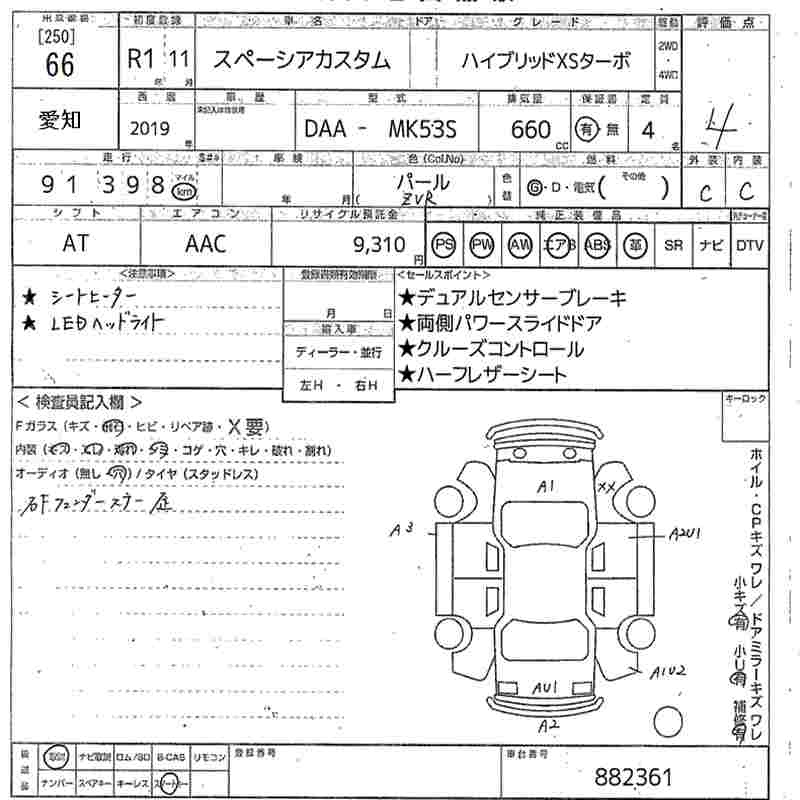 出品番号 初度登録 車名 ドア グレード 駆動 評価点
[250]
66 R1 11 スペーシアカスタム ハイブリッドXSターボ 2WD・4WD
年 月
西暦 車歴 型式 排気量 保証書 定員
愛知 2019 年 DAA - MK53S 660 CC 有・無 4 名 4
走行 車検 色(Col.No) 燃料 外装 内装
91398 マイル km 年 月 パール ZVR 色替 G・D・電気( その他 ) C C
シフト エアコン リサイクル預託金 純正装備品
AT AAC 9,310 円 PS PW AW エアB ABS 革 SR ナビ DTV
<注意事項> 登録書類有効期限 <セールスポイント>
★ シートヒーター
★ LEDヘッドライト
月 日
輸入車
ディーラー・並行
左H ・ 右H
★デュアルセンサーブレーキ
★両側パワースライドドア
★クルーズコントロール
★ハーフレザーシート
キーロック
<検査員記入欄>
Fガラス (キズ・飛石・ヒビ・リペア跡・X要)
内装 (キズ・スレ・汚れ・シミ・コゲ・穴・キレ・破れ・割れ)
オーディオ (無し・穴) / タイヤ (スタッドレス)
右Fフェンダーステー
A1 XX
A3 A2U1
A1U2
AU1
A2
ホイル・CPキズ ワレ/ドアミラーキズ ワレ
小キズ有 小U有 補修有
取説 ナビ取説 ロム/SD B-CAS リモコン 登録番号 車台番号
ナンバー スペアキー キーレス スマートキー 882361